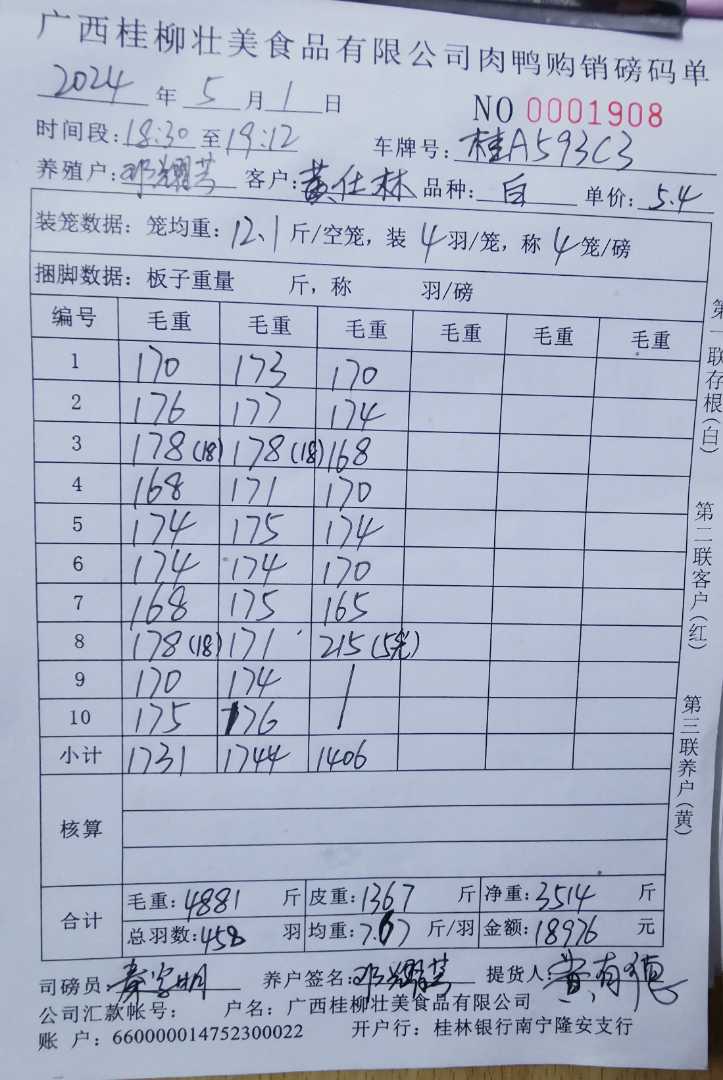 广西桂柳壮美食品有限公司肉鸭购销磅码单
2024年5月1日 NO 0001908
时间段:18:30至19:12 车牌号:桂A593C3
养殖户:邓耀芳 客户:黄仕林 品种:白 单价:5.4
装笼数据:笼均重:12.1斤/空笼,装4羽/笼,称4笼/磅
捆脚数据:板子重量 斤,称 羽/磅
编号 毛重 毛重 毛重 毛重 毛重 毛重
1 170 173 170
2 176 177 174
3 178(18) 178(18) 168
4 168 171 170
5 174 175 174
6 174 174 170
7 168 175 165
8 178(18) 171 215(5笼)
9 170 174 /
10 175 176 /
小计 1731 1744 1406
核算
合计 毛重:4881斤 皮重:1367斤 净重:3514斤
总羽数:458羽 均重:7.67斤/羽 金额:18976元
司磅员: 养户签名:邓耀芳 提货人:黄有德
公司汇款帐号: 户名:广西桂柳壮美食品有限公司
账 户:660000014752300022 开户行:桂林银行南宁隆安支行
第一联存根(白) 第二联客户(红) 第三联养户(黄)